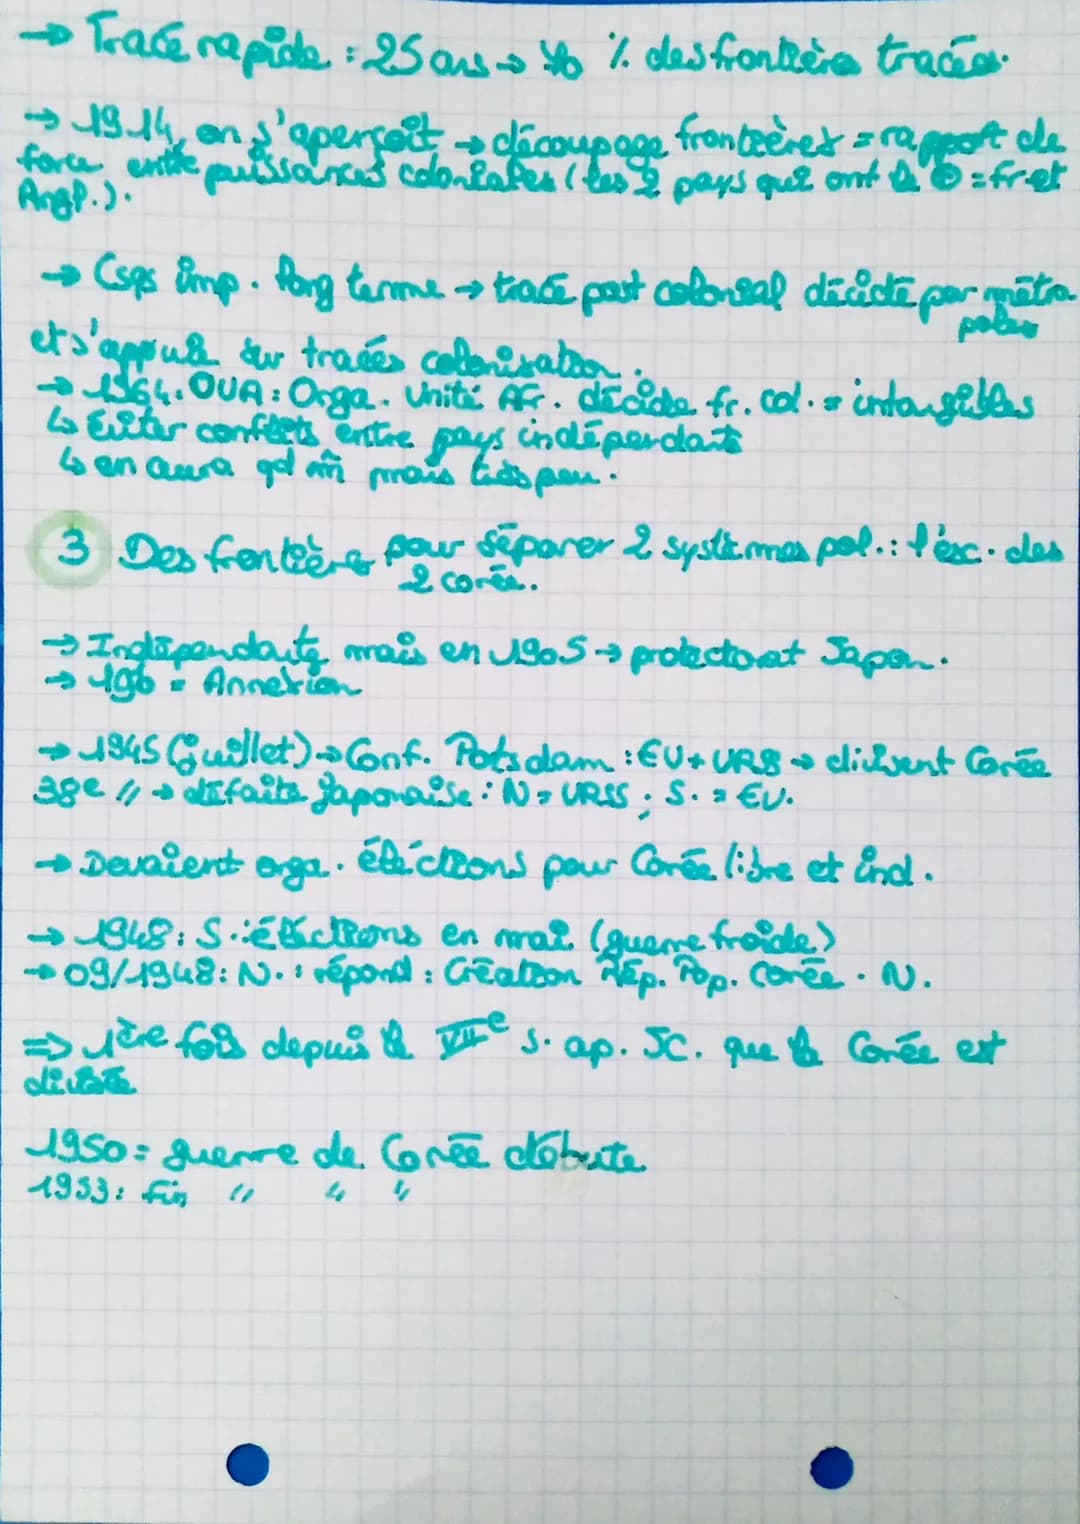 → Tracé rapide : 25 ans → 70 % des frontières tracées.
→ 1914, on s'aperçoit → découpage frontières = rapport de
force entre puissances coloniales (les 2 pays qui ont le ⊕ = fr et
Angl.).
→ Csqs imp. long terme → tracé post colonial décidé par métro
poles
et s'appuie sur tracés colonisation.
→ 1964 : OUA : Orga. Unité Afr. décide fr. col. = intangibles
↳ Éviter conflits entre pays indépendants
↳ en aura qd mm mais très peu.
3 Des frontières pour séparer 2 systèmes pol. : l'ex. des
2 corée.
→ Indépendante mais en 1905 → protectorat Japon.
→ = Annexion
→ 1945 (juillet) → Conf. Potsdam : EU + URSS → divisent Corée
38e // → défaite japonaise : N = URSS ; S. = EU.
→ Devaient orga. éléctions pour Corée libre et ind.
→ 1948 : S. : éléctions en mai (guerre froide)
→ 09/1948 : N. : répond : Création Rép. Pop. Corée. N.
⇒ 1ère fois depuis le VIIe s. ap. JC. que la Corée est
divisée
1950 = guerre de Corée débute
1953 : fin " " "